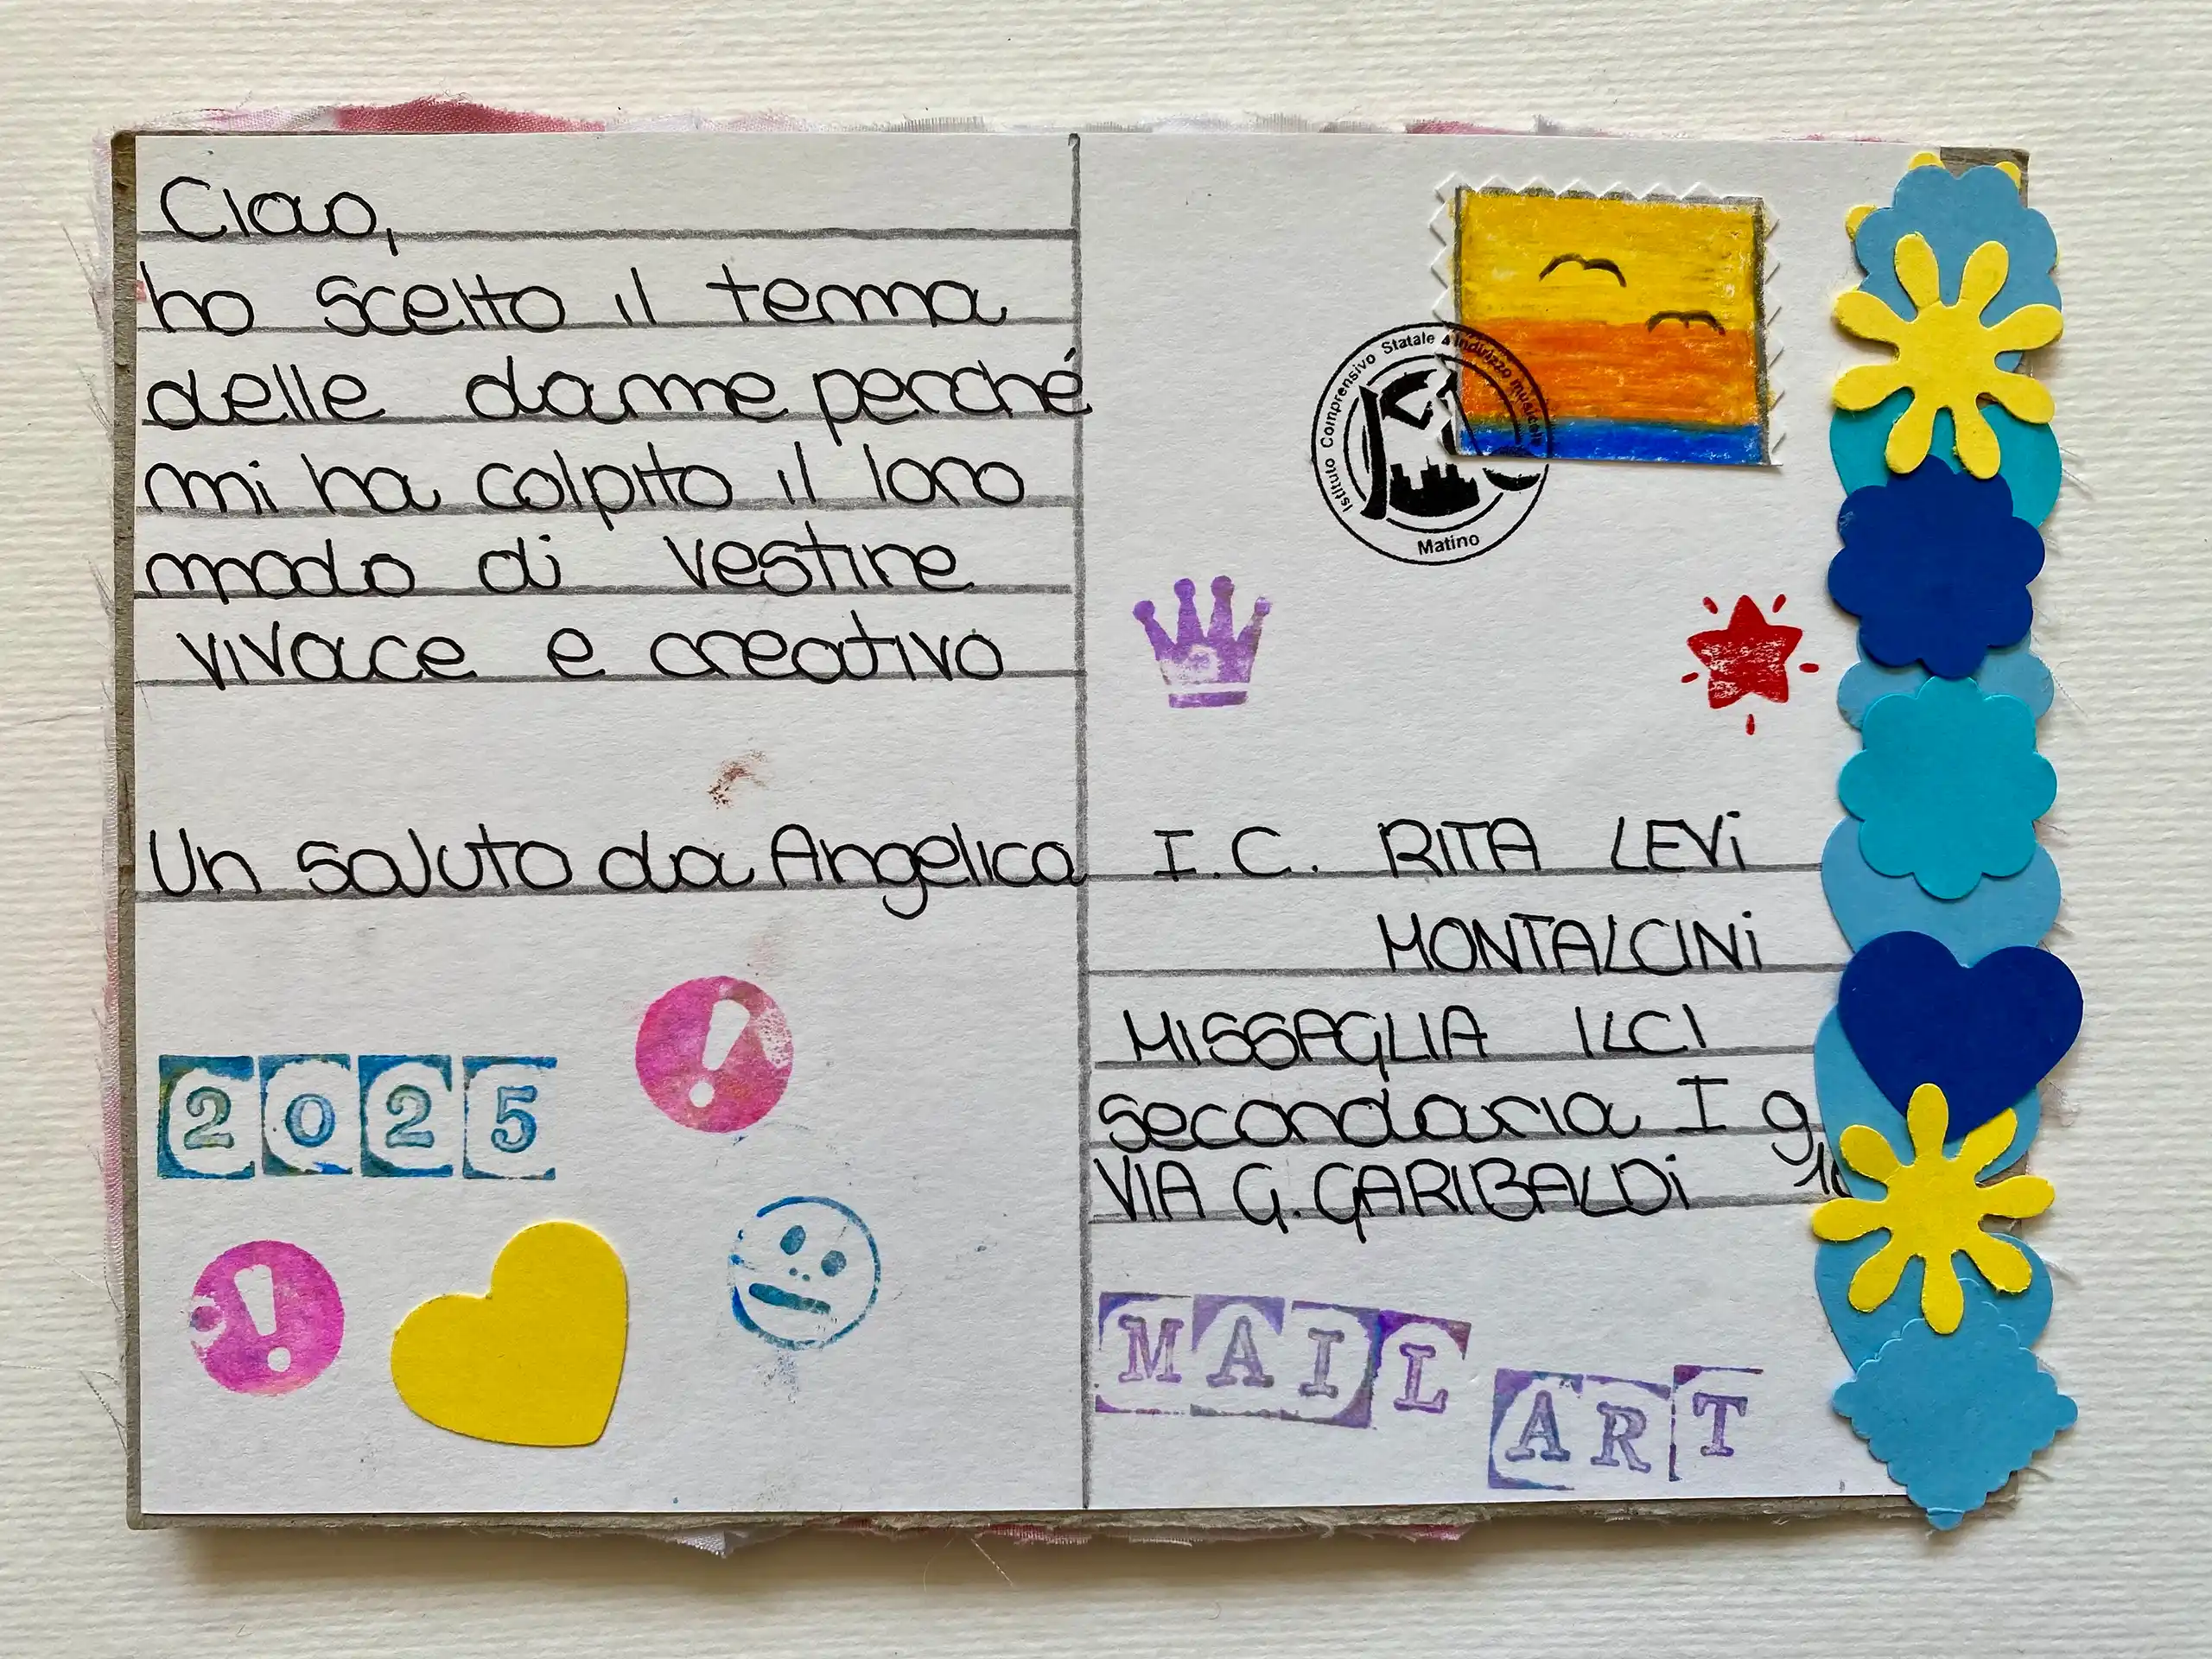 Ciao,
ho scelto il tema
delle dame perché
mi ha colpito il loro
modo di vestire
vivace e creativo
Un saluto da Angelica
2025
Istituto Comprensivo Statale a indirizzo musicale
Matino
I.C. RITA LEVI
MONTALCINI
MISSAGLIA ILCI
secondaria I g
VIA G. GARIBALDI
MAIL
ART